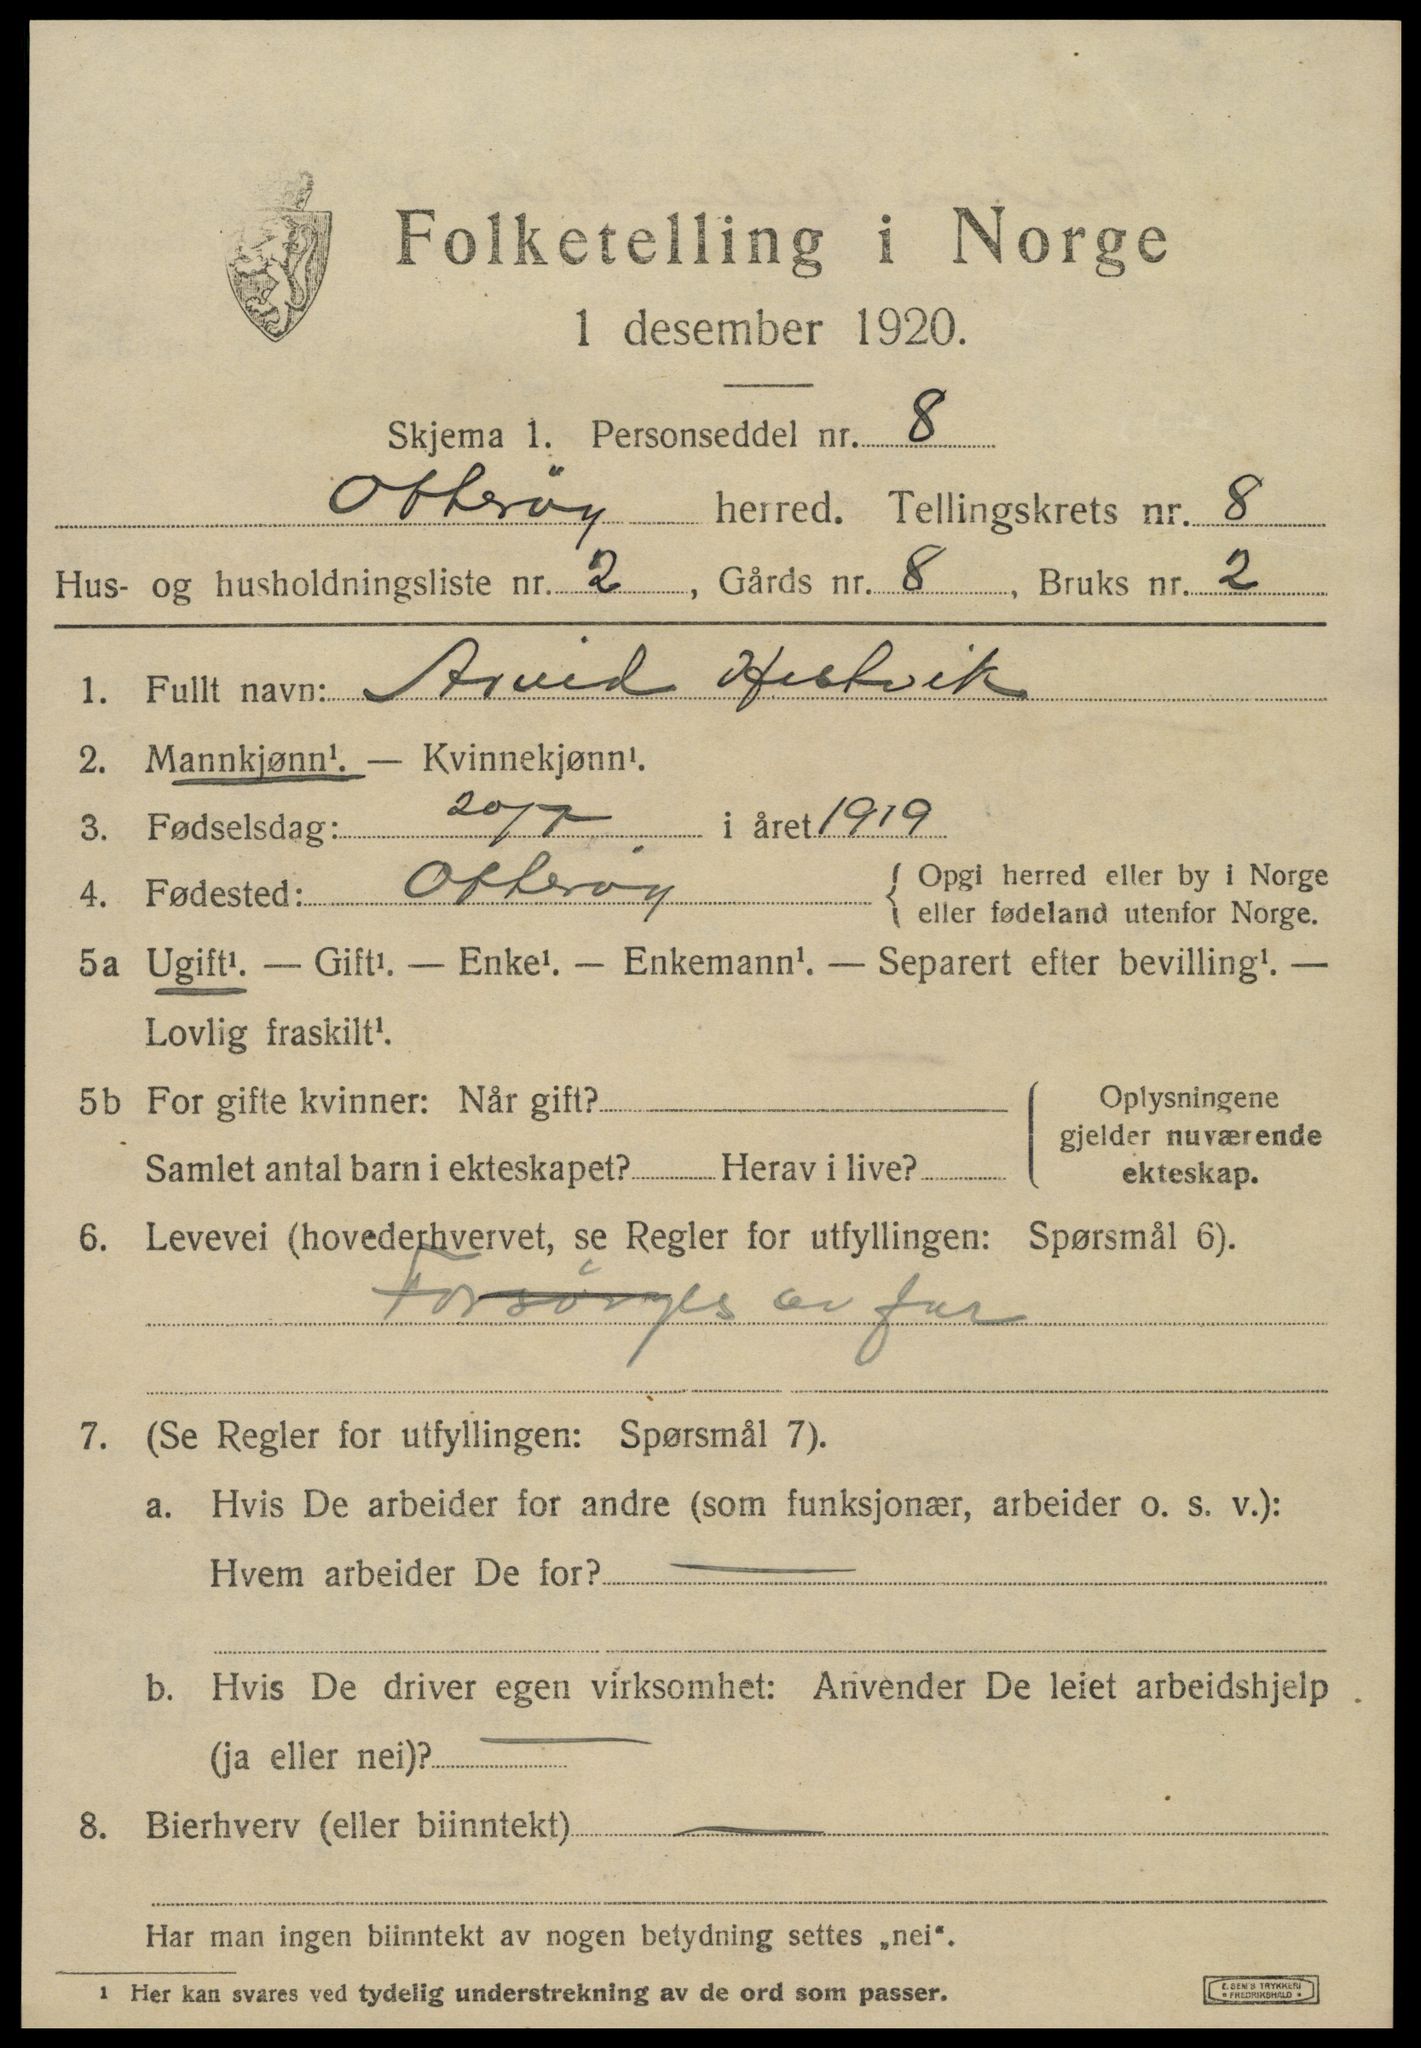 Folketelling i Norge
1 desember 1920.
Skjema 1. Personseddel nr. 8
Otterøy herred. Tellingskrets nr. 8
Hus- og husholdningsliste nr. 2, Gårds nr. 8, Bruks nr. 2
1. Fullt navn: Arvid Hestvik
2. Mannkjønn¹. — Kvinnekjønn¹.
3. Fødselsdag: 20/7 i året 1919
4. Fødested: Otterøy { Opgi herred eller by i Norge
eller fødeland utenfor Norge.
5a Ugift¹. — Gift¹. — Enke¹. — Enkemann¹. — Separert efter bevilling¹. —
Lovlig fraskilt¹.
5b For gifte kvinner: Når gift?
Samlet antal barn i ekteskapet? Herav i live?
Oplysningene
gjelder nuværende
ekteskap.
6. Levevei (hovederhvervet, se Regler for utfyllingen: Spørsmål 6).
Forsørges av far
7. (Se Regler for utfyllingen: Spørsmål 7).
a. Hvis De arbeider for andre (som funksjonær, arbeider o. s. v.):
Hvem arbeider De for? —
b. Hvis De driver egen virksomhet: Anvender De leiet arbeidshjelp
(ja eller nei)? —
8. Bierhverv (eller biinntekt) —
Har man ingen biinntekt av nogen betydning settes „nei“.
1 Her kan svares ved tydelig understrekning av de ord som passer.
E. SEM'S TRYKKERI
* FREDRIKSHALD *